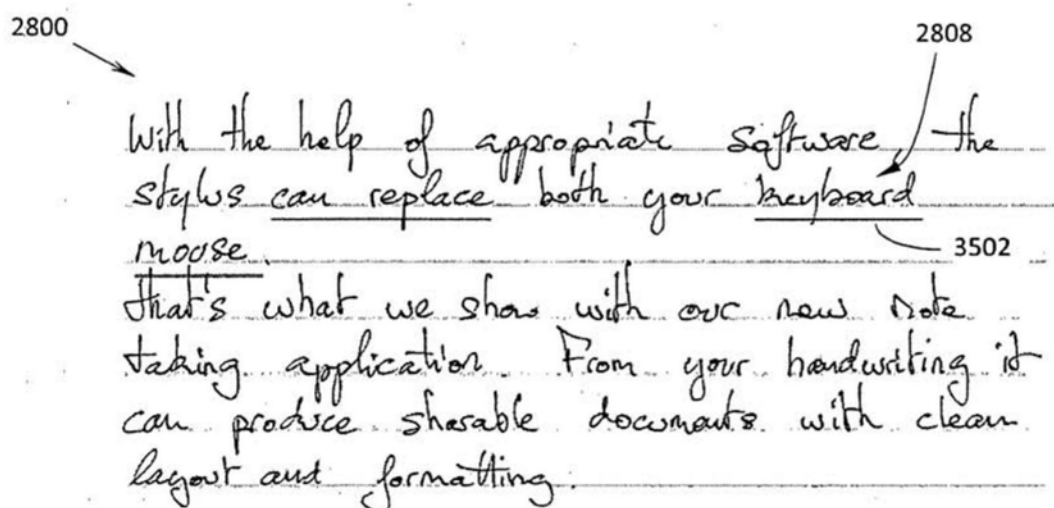 2800
2808
With the help of appropriate software the
stylus can replace both your keyboard
3502
mouse.
that's what we show with our new note
taking application. From your handwriting it
can produce sharable documents with clean
layout and formatting.